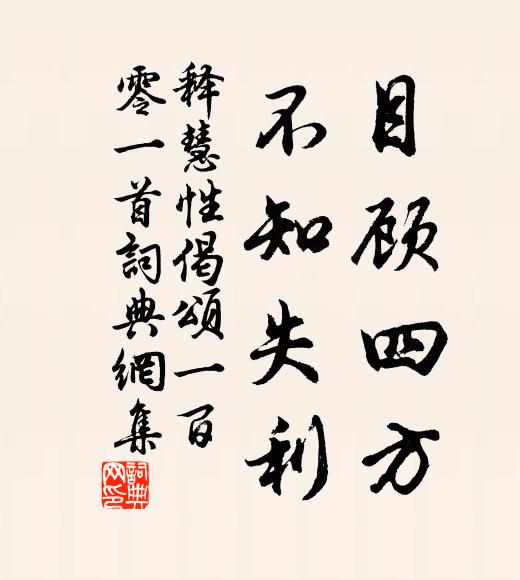 目顾四方
不知失利
释慧性偈颂一百
零一首詞典網集
詞典
网印